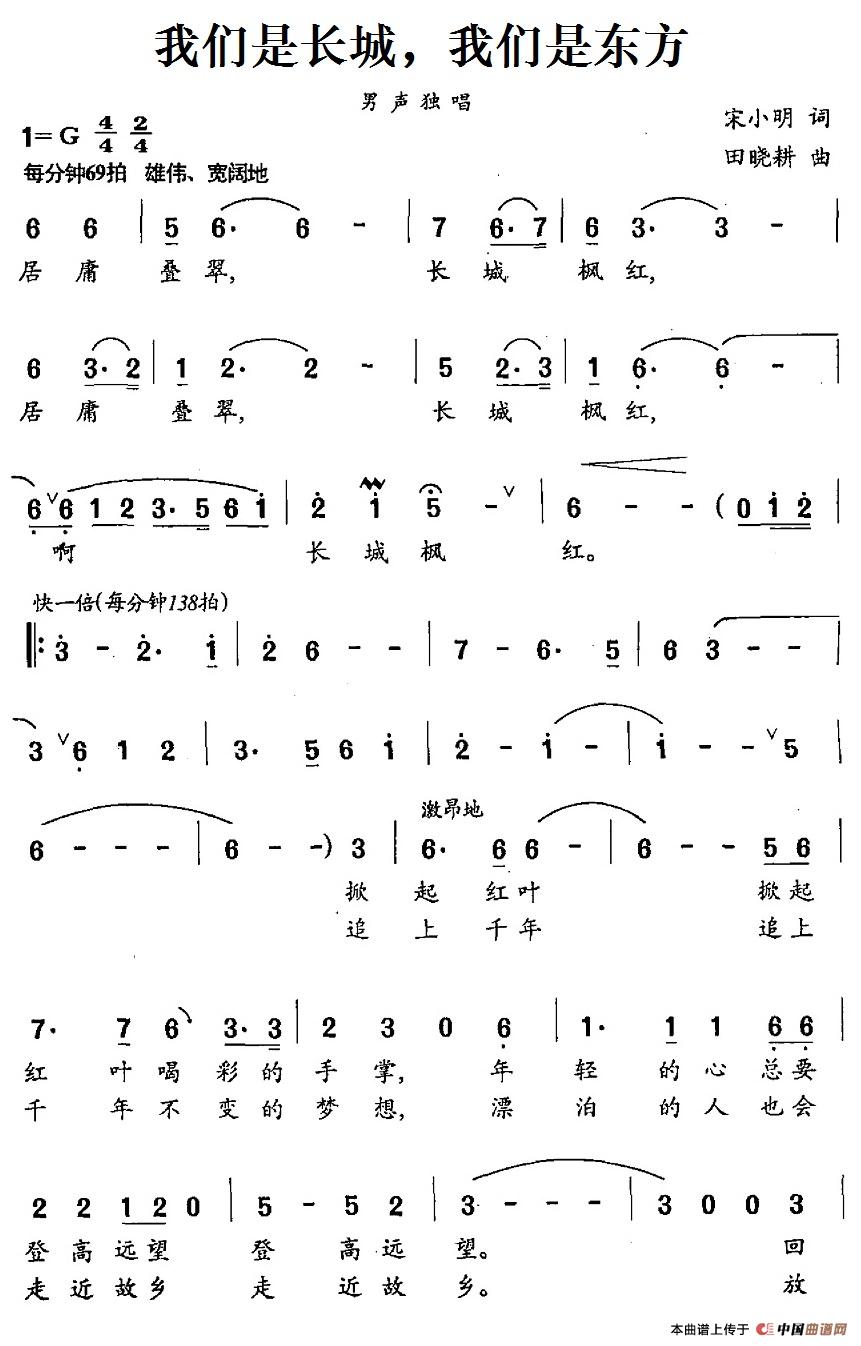 我们是长城，我们是东方
男声独唱
1=G 4/4 2/4
宋小明 词
每分钟69拍 雄伟、宽阔地
田晓耕 曲
6 6 | 5 6· 6 - | 7 6· 7 | 6 3· 3 - |
居庸叠翠, 长城枫红,
6 3· 2 | 1 2· 2 - | 5 2· 3 | 1 6· 6 - |
居庸叠翠, 长城枫红,
6 ∨ 6 1 2 3· 5 6 1 | 2 1 5 - ∨ | 6 - - (0 1 2 |
啊 长城枫红。
快一倍(每分钟138拍)
‖: 3 - 2· 1 | 2 6 - - | 7 - 6· 5 | 6 3 - - |
3 ∨ 6 1 2 | 3· 5 6 1 | 2 - 1 - | 1 - - ∨ 5 |
激昂地
6 - - - | 6 - -) 3 | 6· 6 6 - | 6 - - 5 6 |
掀起红叶 掀起
追上千年 追上
7· 7 6 3· 3 | 2 3 0 6 | 1· 1 1 6 6 |
红叶喝彩的手掌, 年轻的心总要
千年不变的梦想, 漂泊的人也会
2 2 1 2 0 | 5 - 5 2 | 3 - - - | 3 0 0 3 |
登高远望 登高远望。 回
走近故乡 走近故乡。 放
本曲谱上传于 中国曲谱网